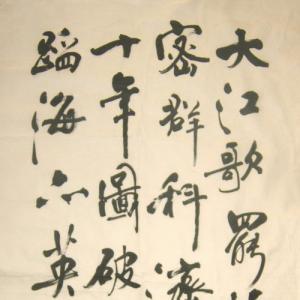 大江歌罷
密群科濟
十年圖破
蹈海亦英